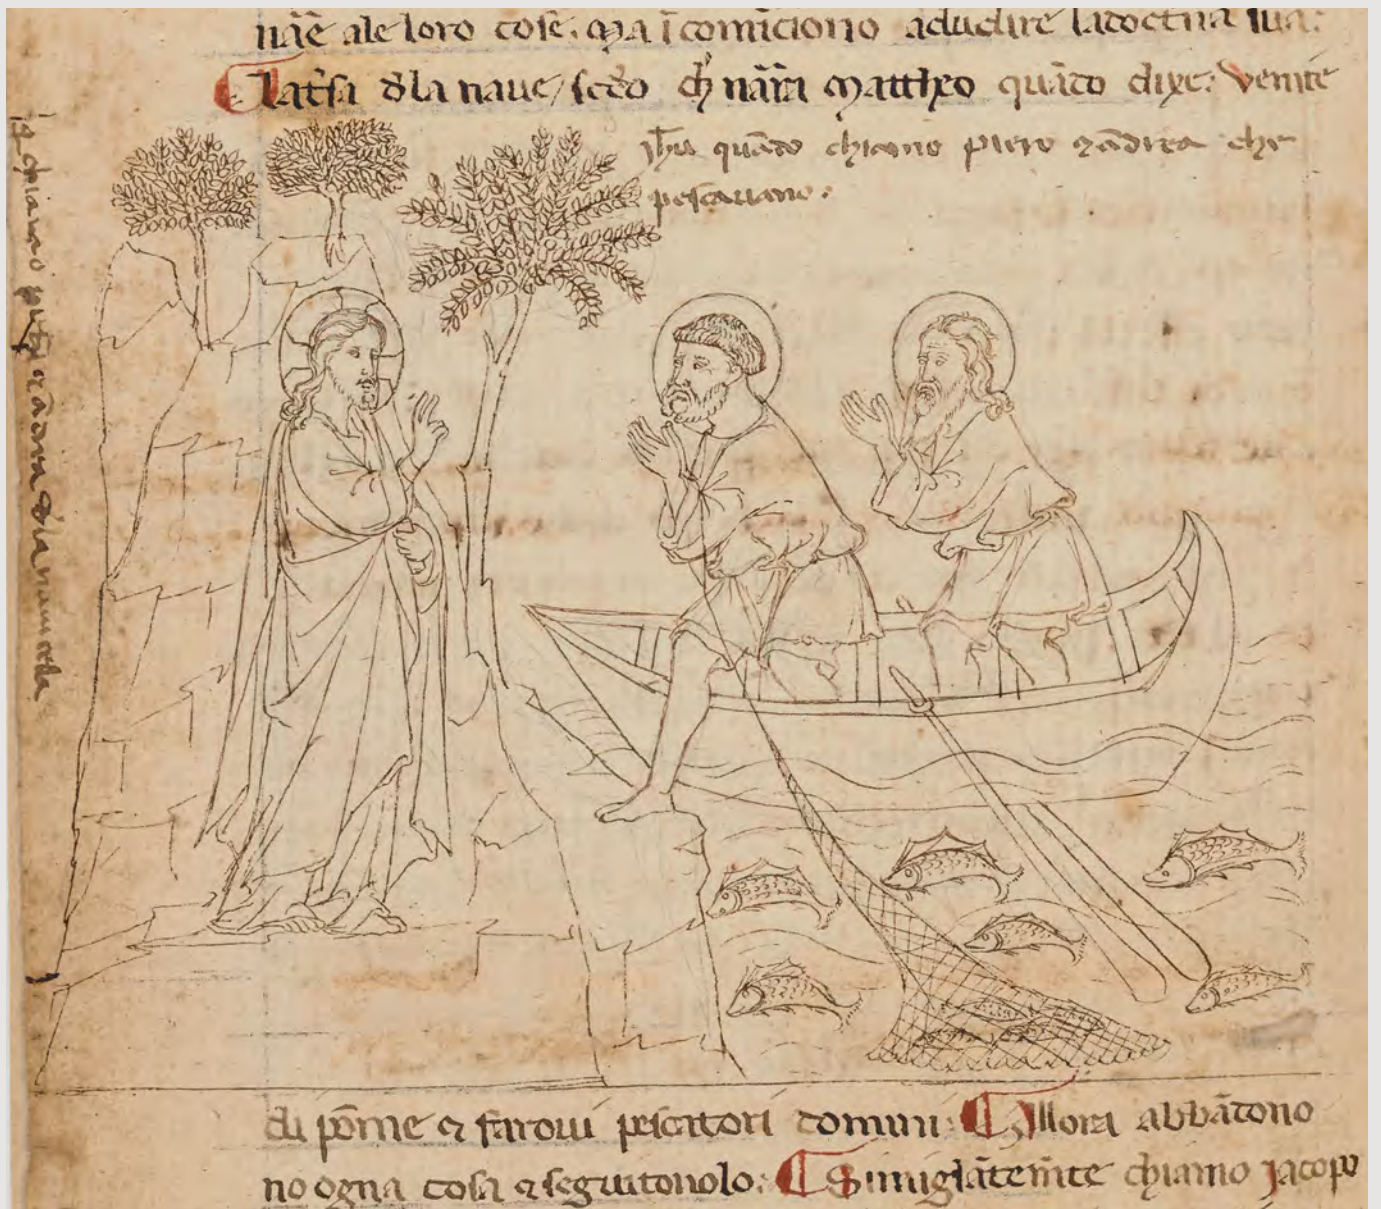 nāe ale loro cose. Ma īcomiciono adudire ladoctrīa sua:
Lat̄sa d̄la naue / scd̄o ch̄ nāra Mattheo quādo dixe: Venite
Jh̄u quādo chiamo piero ⁊ādrea che
pescauano:
chiamo ⁊ādrea
di po me ⁊ farouui pescatori domini: Allora abbādono
no ogna cosa ⁊ seguitonolo: Simiglātem̄te chiamo Jacopo